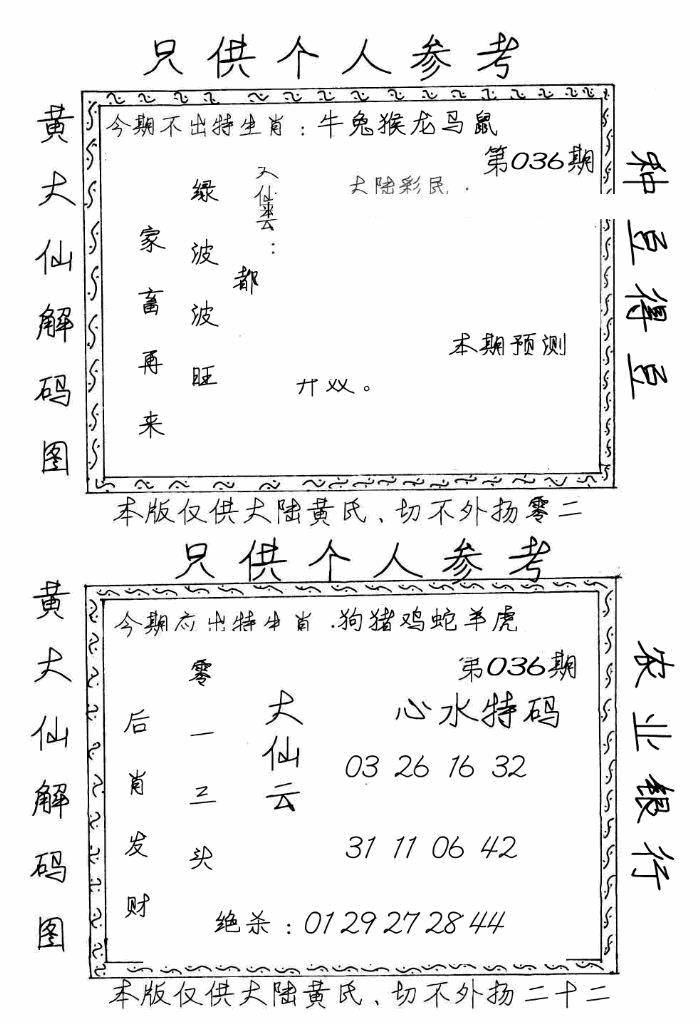 只供个人参考
黄大仙解码图
今期不出特生肖：牛兔猴龙马鼠
第036期
大陆彩民.
绿波波旺
家畜再来
都
本期预测
廾双。
种豆得豆
本版仅供大陆黄氏、切不外扬零二
只供个人参考
黄大仙解码图
今期应出特生肖.狗猪鸡蛇羊虎
第036期
零一三头
后肖发财
大仙云
心水特码
03 26 16 32
31 11 06 42
绝杀：01 29 27 28 44
农业银行
本版仅供大陆黄氏、切不外扬二十二